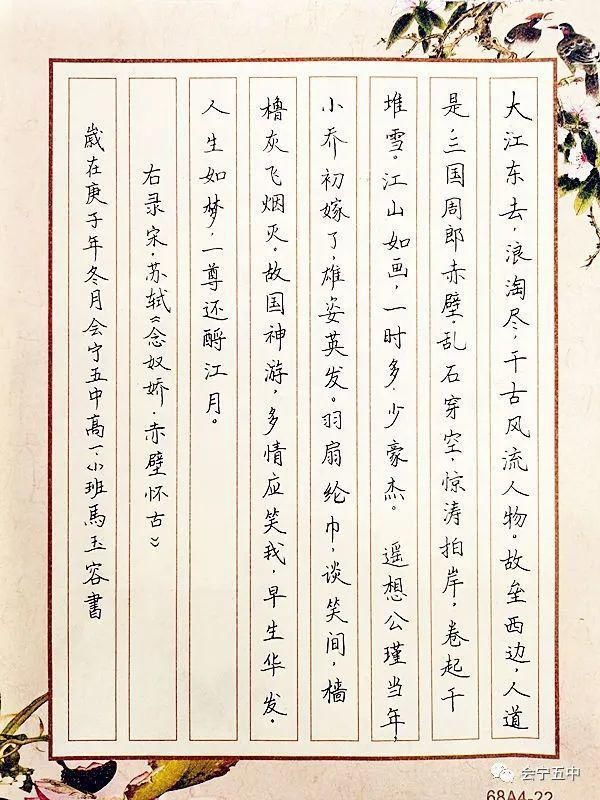 大江东去，浪淘尽，千古风流人物。故垒西边，人道
是，三国周郎赤壁。乱石穿空，惊涛拍岸，卷起千
堆雪。江山如画，一时多少豪杰。 遥想公瑾当年，
小乔初嫁了，雄姿英发。羽扇纶巾，谈笑间，樯
橹灰飞烟灭。故国神游，多情应笑我，早生华发。
人生如梦，一尊还酹江月。
右录宋·苏轼《念奴娇·赤壁怀古》
岁在庚子年冬月会宁五中高一小班馬玉容書
会宁五中
68A4-22